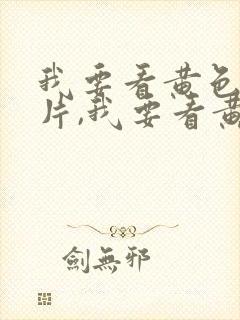 我要看黄色
片,我要看黄
剑無邪